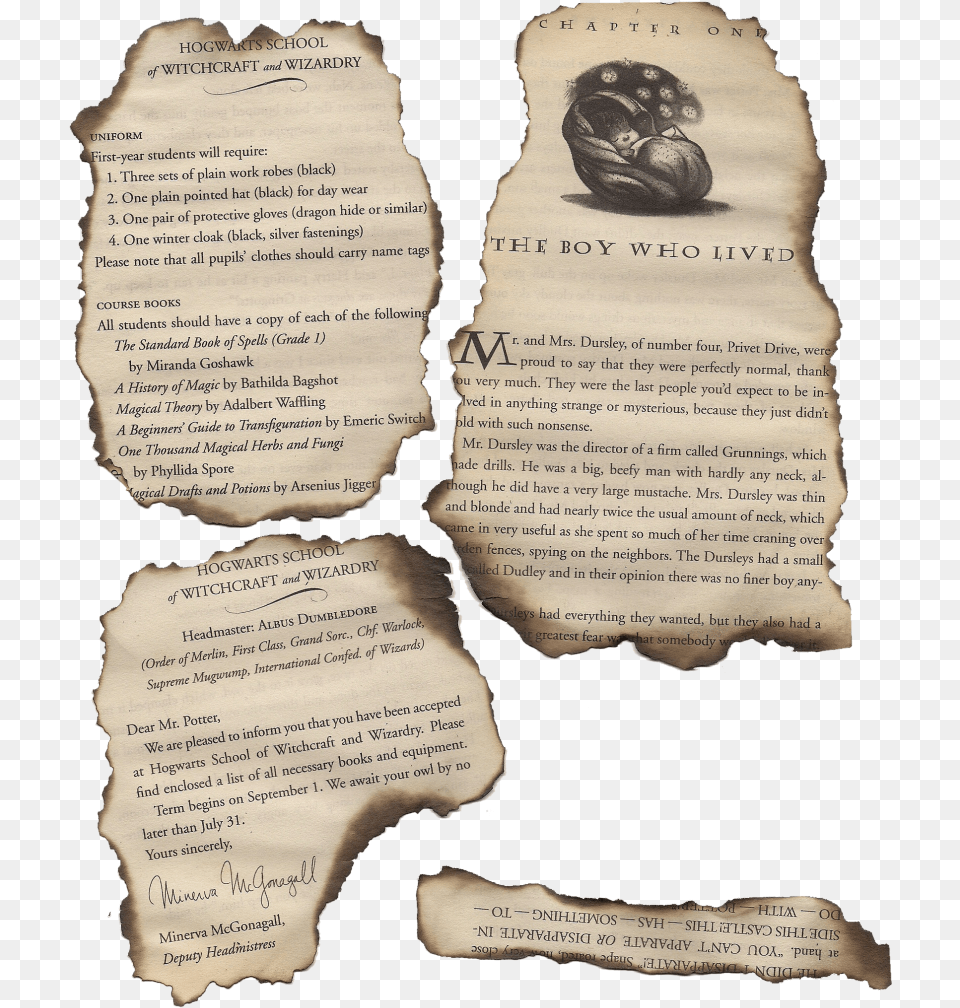 HOGWARTS SCHOOL
of WITCHCRAFT and WIZARDRY
UNIFORM
First-year students will require:
1. Three sets of plain work robes (black)
2. One plain pointed hat (black) for day wear
3. One pair of protective gloves (dragon hide or similar)
4. One winter cloak (black, silver fastenings)
Please note that all pupils' clothes should carry name tags
COURSE BOOKS
All students should have a copy of each of the following
The Standard Book of Spells (Grade 1)
by Miranda Goshawk
A History of Magic by Bathilda Bagshot
Magical Theory by Adalbert Waffling
A Beginners' Guide to Transfiguration by Emeric Switch
One Thousand Magical Herbs and Fungi
by Phyllida Spore
agical Drafts and Potions by Arsenius Jigger
CHAPTER ONE
THE BOY WHO LIVED
Mr. and Mrs. Dursley, of number four, Privet Drive, were
proud to say that they were perfectly normal, thank
ou very much. They were the last people you'd expect to be in-
lved in anything strange or mysterious, because they just didn't
old with such nonsense.
Mr. Dursley was the director of a firm called Grunnings, which
made drills. He was a big, beefy man with hardly any neck, al-
though he did have a very large mustache. Mrs. Dursley was thin
and blonde and had nearly twice the usual amount of neck, which
came in very useful as she spent so much of her time craning over
rden fences, spying on the neighbors. The Dursleys had a small
called Dudley and in their opinion there was no finer boy any-
ursleys had everything they wanted, but they also had a
greatest fear was that somebody
HOGWARTS SCHOOL
of WITCHCRAFT and WIZARDRY
Headmaster: ALBUS DUMBLEDORE
(Order of Merlin, First Class, Grand Sorc., Chf. Warlock,
Supreme Mugwump, International Confed. of Wizards)
Dear Mr. Potter,
We are pleased to inform you that you have been accepted
at Hogwarts School of Witchcraft and Wizardry. Please
find enclosed a list of all necessary books and equipment.
Term begins on September 1. We await your owl by no
later than July 31.
Yours sincerely,
Minerva McGonagall
Minerva McGonagall,
Deputy Headmistress
HE DIDN'T DISAPPARATE!" Snape roared, now very close
at hand. "YOU CAN'T APPARATE OR DISAPPARATE IN-
SIDE THIS CASTLE! THIS — HAS — SOMETHING — TO —
DO — WITH — POTTER